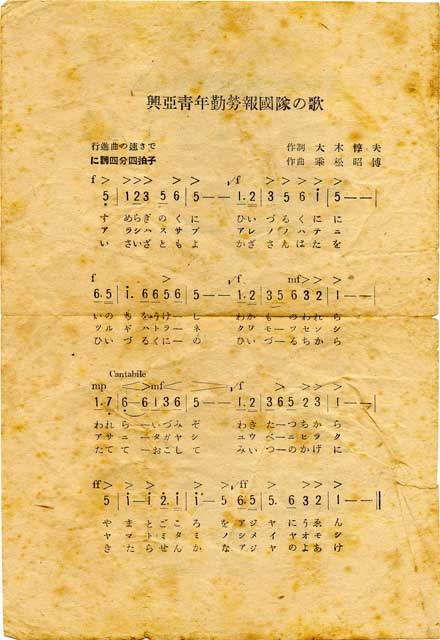 興亞靑年勤勞報國隊の歌
行進曲の速さで
に調四分四拍子
作詞 大木惇夫
作曲 乘松昭博
f > >>> > >> > √f > > > > > >
5 | 1 2 3 5 6 | 5 — — 1.2 | 3 5 6 1 | 5 — — |
すめらぎのくに ひいづるくにに
アラシハスサブ アレノノハテニ
いさいざともよ かざさんはたを
f > √f mf> > >
6.5 | 1. 6 6 5 6 | 5 — — 1.2 | 3 5 6 3 2 | 1 — — |
いのちをうけし わかものわれら
ツルギハトラーネ クワモーツセンシ
ひいづるくにーの ひいづーるちから
Cantabile
mp >mf √f > > > >
1.7 | 6 — 6 1 3 6 | 5 — — 1.2 | 3 6 5 2 3 | 1 — — |
われらーいづみぞ わきたーつちから
アサニータガヤシ ユウベーニヒラク
たててーおこして みいつーのかげに
ff > > > > > > > √ff > > > >
5 | 1 — 1 2. 1 | 1 — 5 6.5 | 5. 6 3 2 | 1 — — ‖
やまとごころをアジヤにうゑん
ヤマトミタミノシメイヤオモシ
きたらせんかなアジヤのよあけ